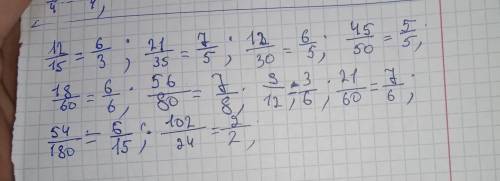 12/15 = 6/3; 21/35 = 7/5; 12/30 = 6/5; 45/50 = 5/5;
18/60 = 6/6; 56/80 = 7/8; 9/12 = 3/6; 21/60 = 7/6;
54/180 = 6/15; 102/24 = 2/2;